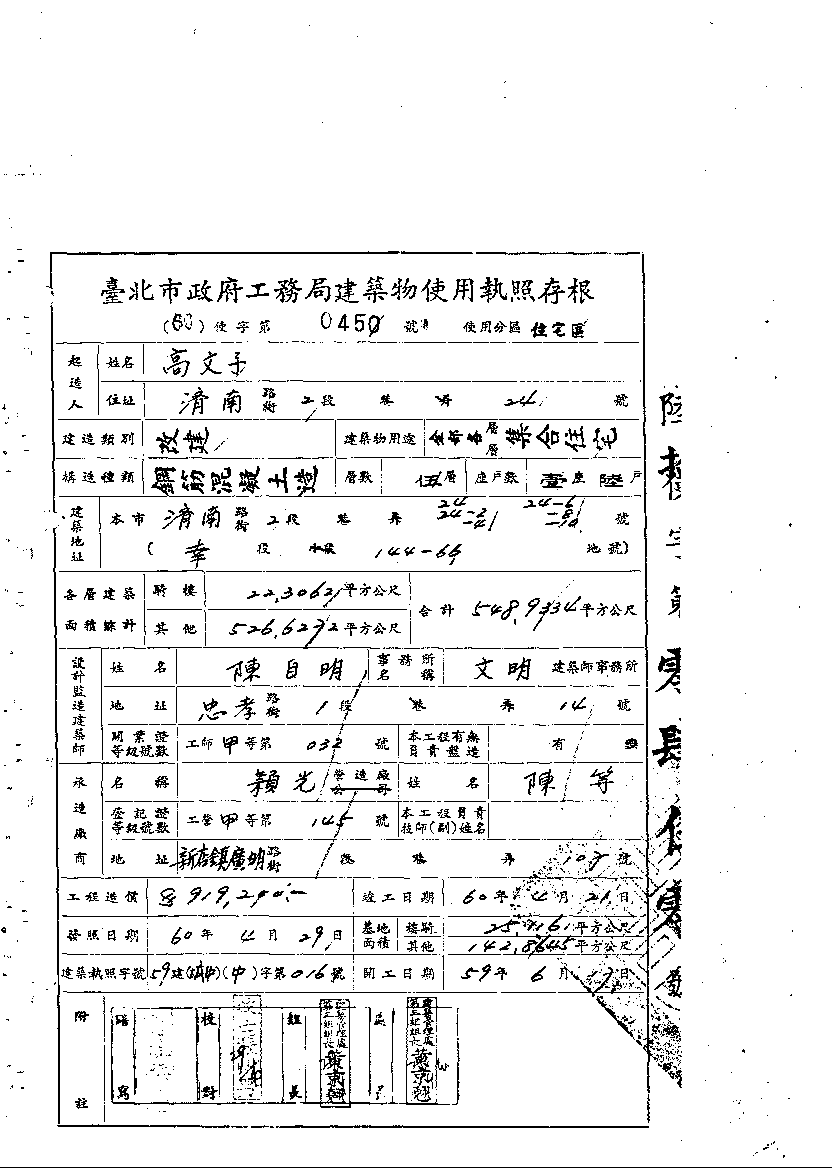 臺北市政府工務局建築物使用執照存根
(60)使字第 0450 號 使用分區 住宅區
起造人 姓名 高文子
住址 濟南 路街 2段 巷 弄 24 號
建造類別 改建 建築物用途 全部各層層 集合住宅
構造種類 鋼筋混凝土造 層數 伍層 座戶數 壹座 陸戶
建築地址 本市 濟南 路街 2段 巷 弄 24 號
(幸 段 小段 144-66 地號)
各層建築面積總計 騎樓 22.3062 平方公尺 合計 548.9334 平方公尺
其他 526.6272 平方公尺
設計監造建築師 姓名 陳自明 事務所名稱 文明 建築師事務所
地址 忠孝 路街 1段 巷 弄 14 號
開業證等級號數 工師 甲等第 032 號 本工程有無負責監造 有
承造廠商 名稱 穎光 營造廠公司 姓名 陳等
登記證等級號數 工營 甲等第 145 號 本工程負責技師(副)姓名
地址 新店鎮廣明 路街 段 巷 弄 號
工程造價 919,290.- 竣工日期 60年 4月 21日
發照日期 60年 4月 29日 基地面積 騎樓 平方公尺
其他 142.8645 平方公尺
建築執照字號 59建 (中)字第016號 開工日期 59年 6月 日
附註 繕寫 校對 組長
黃南翔